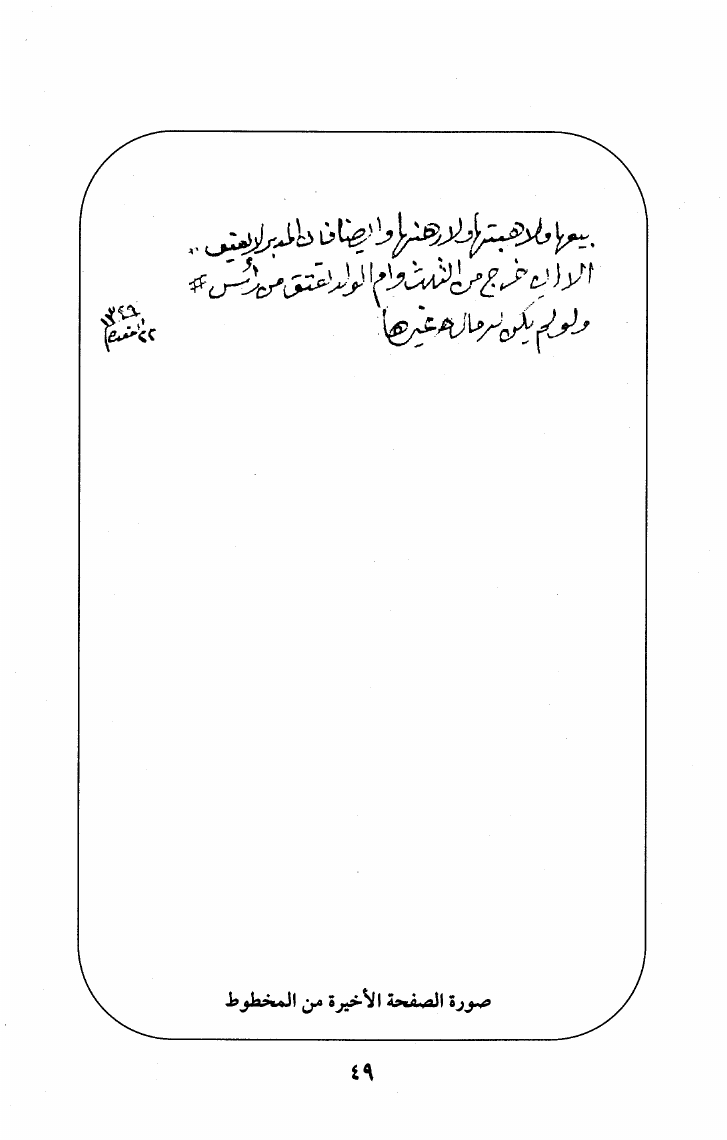 بيعها ولا هبتها ولا رهنها وايضا فان المدبر لا يعتق
الا ان خرج من الثلث وام الولد تعتق من رأس #
ولو لم يكن له مال غيرها
١٣٤٦
٢٢
صورة الصفحة الأخيرة من المخطوط
٤٩